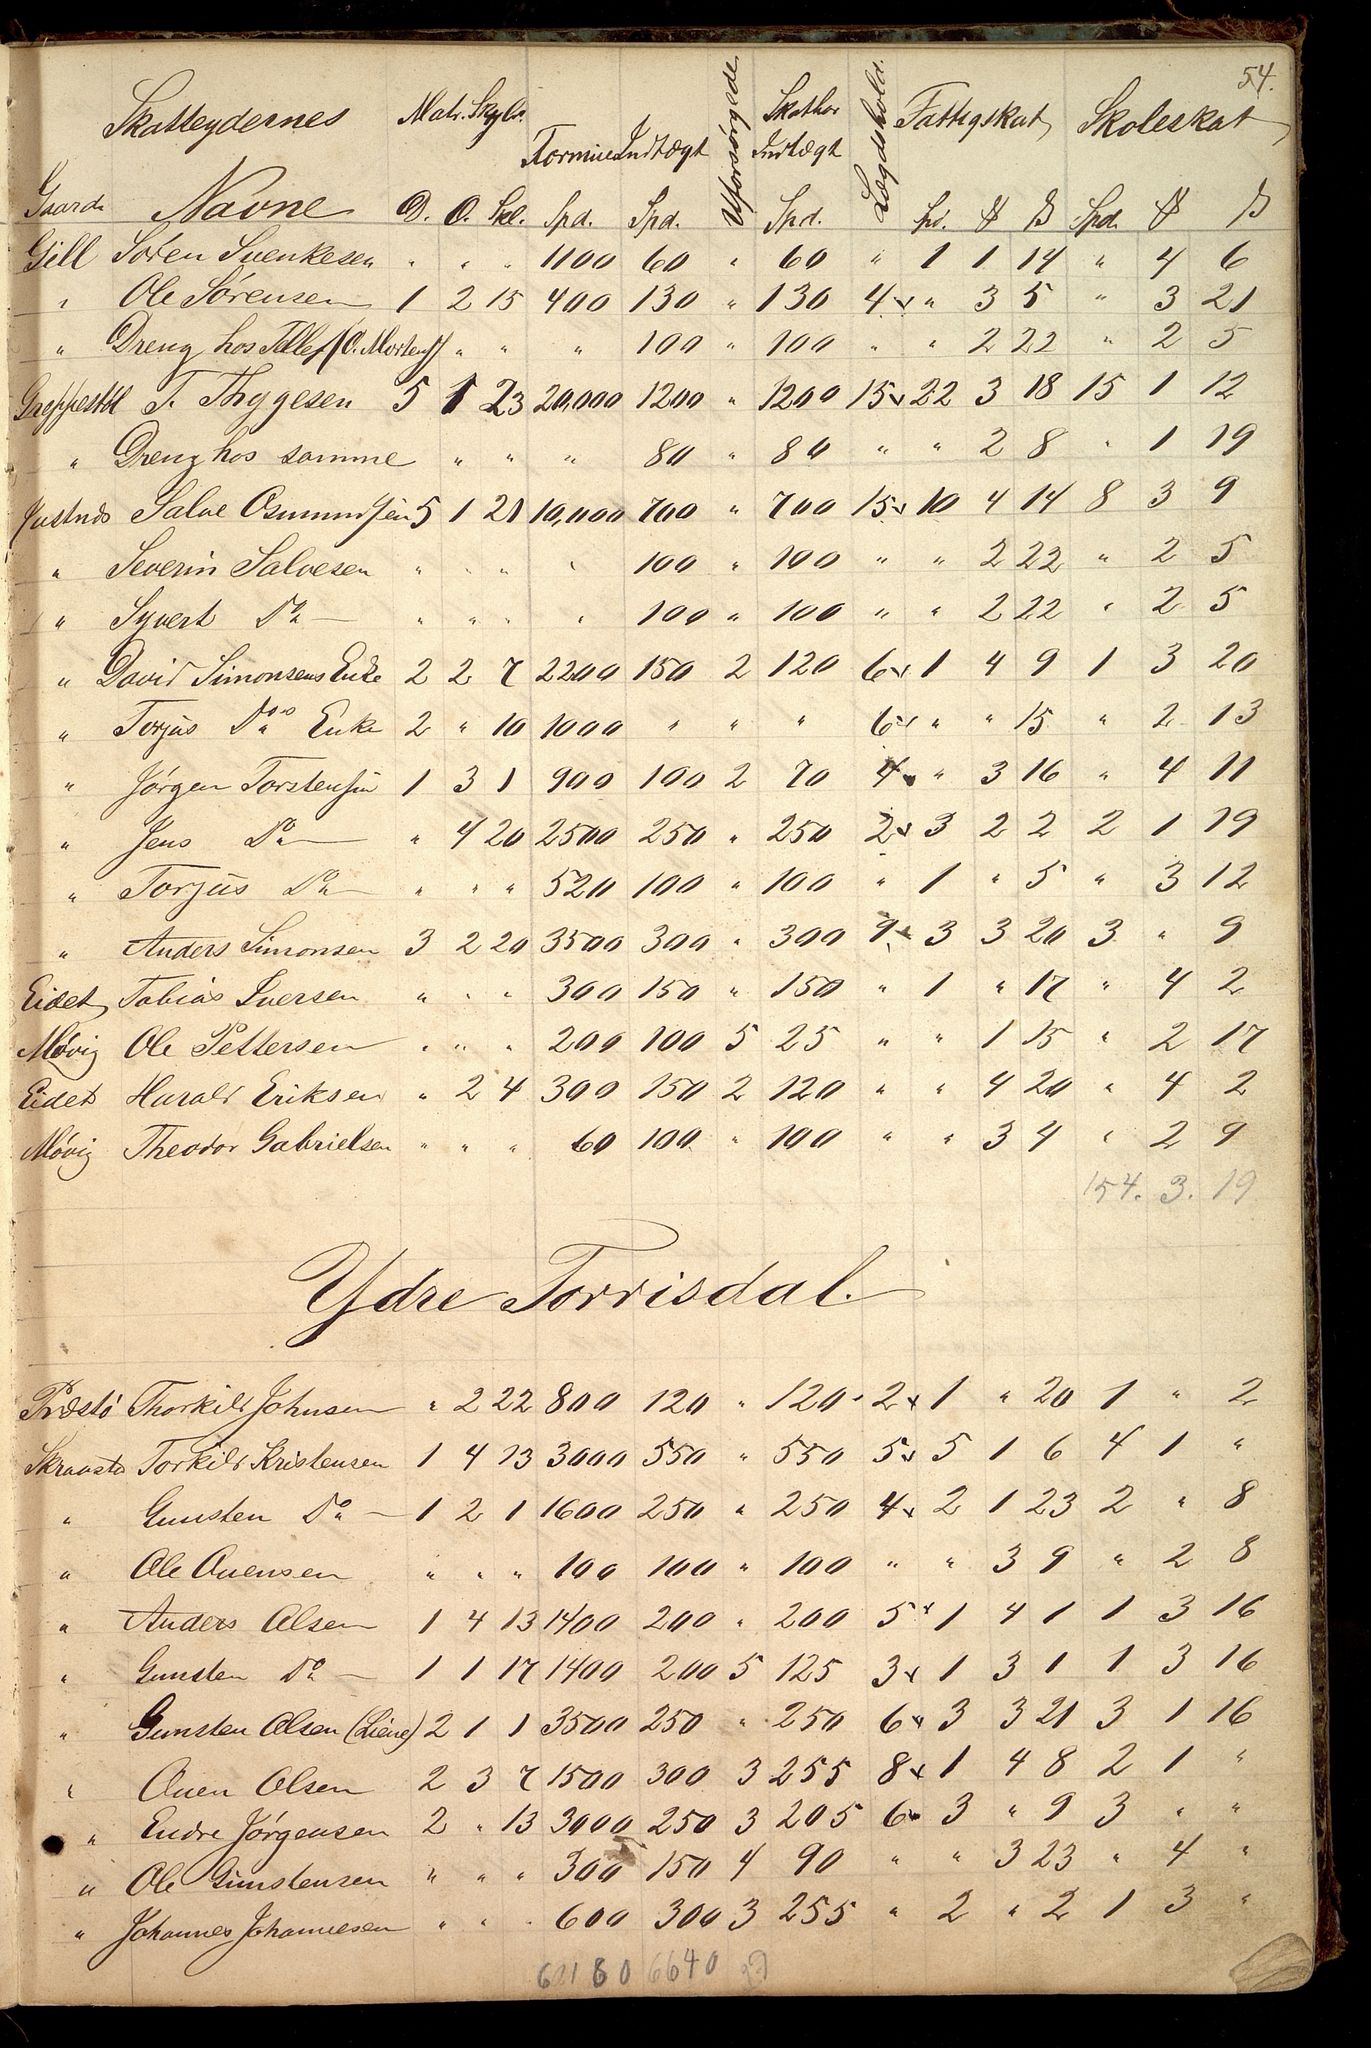 54.
Skatteydernes Matr. Skyld. Formue Indtægt Uforsørgede Skatbar Indtægt Lægdshold. Fattigskat Skoleskat
Gaard Navne D. O. Skl. Spd. Spd. Spd. Spd. ¥ β Spd. ¥ β
Gill Sören Svenkesen " " " 1100 60 " 60 " 1 1 14 " 4 6
" Ole Sørensen 1 2 15 400 130 " 130 4 " 3 5 " 3 21
" Dreng hos Tellef (O. Mortens) " " " 100 " 100 " " 2 22 " 2 5
Greppestöl T. Thygesen 5 1 23 20,000 1200 " 1200 15 22 3 18 15 1 12
" Dreng hos samme " " " 80 " 80 " " 2 8 " 1 19
Justnæs Salve Osmundsen 5 1 21 10,000 700 " 700 15 10 4 14 8 3 9
" Severin Salvesen " " " " 100 " 100 " " 2 22 " 2 5
" Syvert Do " " " " 100 " 100 " " 2 22 " 2 5
" David Simonsens Enke 2 2 7 2200 150 2 120 6 1 4 9 1 3 20
" Torjus Do Enke 2 " 10 1000 " " " 6 " " 15 " 2 13
" Jörgen Torstensen 1 3 1 900 100 2 70 4 " 3 16 " 4 11
" Jens Do " 4 20 2500 250 " 250 2 3 2 2 2 1 19
" Torjus Do " " " 520 100 " 100 " 1 " 5 " 3 12
" Anders Simonsen 3 2 20 3500 300 " 300 9 3 3 20 3 " 9
Eidet Tobias Iversen " " " 300 150 " 150 " 1 " 17 " 4 2
Møvig Ole Pettersen " " " 200 100 5 25 " " 1 15 " 2 17
Eidet Harald Eriksen " 2 4 300 150 2 120 " " 4 20 " 4 2
Møvig Theodor Gabrielsen " " " 60 100 " 100 " " 3 4 " 2 9
154. 3. 19
Ydre Torrisdal.
Præstö Thorkild Johnsen " 2 22 800 120 " 120 2 1 " 20 1 " 2
Skraasta Torkild Kristensen 1 4 13 3000 550 " 550 5 5 1 6 4 1 "
" Gunsten Do 1 2 1 1600 250 " 250 4 2 1 23 2 " 8
" Ole Auensen " " " 100 100 " 100 " " 3 9 " 2 8
" Anders Olsen 1 4 13 1400 200 " 200 5 1 4 1 1 3 16
" Gunsten Do 1 1 17 1400 200 5 125 3 1 3 1 1 3 16
" Gunsten Olsen (Liene) 2 1 1 3500 250 " 250 6 3 3 21 3 1 16
" Auen Olsen 2 3 7 1500 300 3 255 8 1 4 8 2 1 "
" Endre Jørgensen 2 " 13 3000 250 3 205 6 3 " 9 3 " "
" Ole Gunstensen " " " 300 150 4 90 " " 3 23 " 4 "
" Johannes Johannesen " " " 600 300 3 255 " 2 " 2 1 3 "
6640